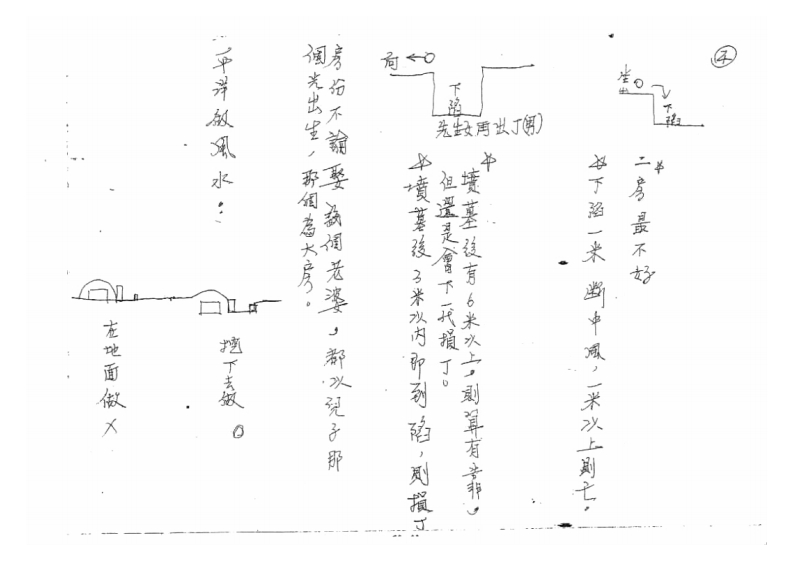 ④
坐山
下陷
二房最不好
下陷一米斷中風，一米以上則亡。
向
下陷
先生女再出丁(男)
墳墓後有6米以上，則算有靠。
但還是會下一代損丁。
墳墓後3米以內即到陷，則損丁
房份不論娶幾個老婆，都以兒子那
個先出生，那個為大房。
平洋做風水：
挖下去做 O
在地面做 X